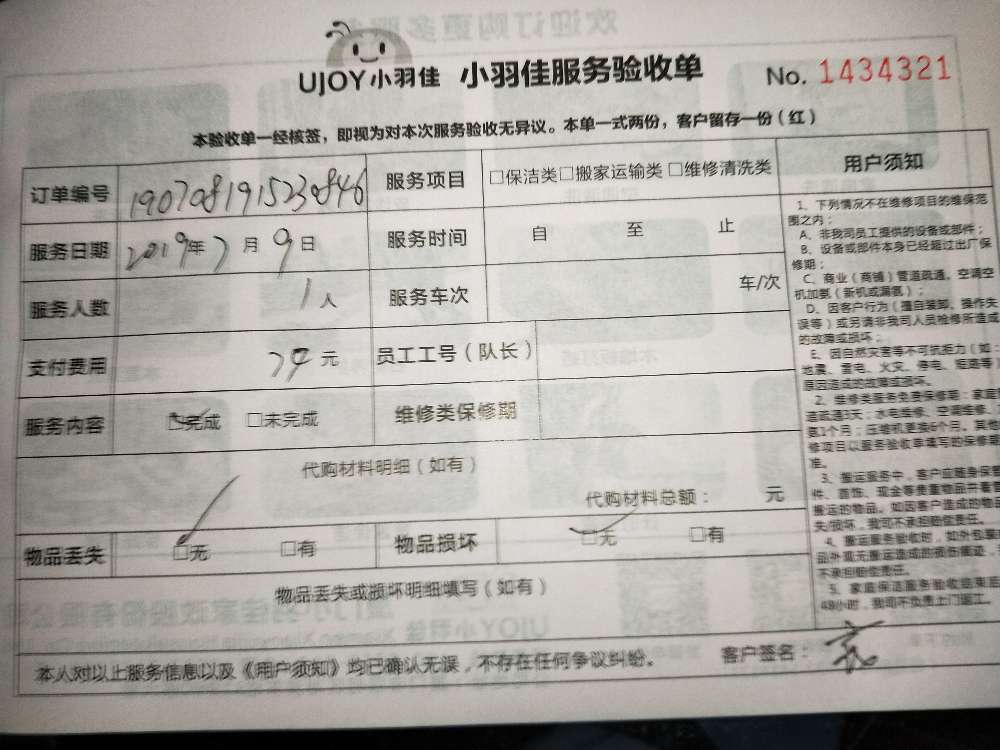 UJOY小羽佳 小羽佳服务验收单 No. 1434321
本验收单一经核签，即视为对本次服务验收无异议。本单一式两份，客户留存一份（红）
订单编号 1907081915230846 服务项目 □保洁类□搬家运输类 □维修清洗类
服务日期 2019年7月9日 服务时间 自 至 止
服务人数 1人 服务车次 车/次
支付费用 74元 员工工号（队长）
服务内容 □完成 □未完成 维修类保修期
代购材料明细（如有）
代购材料总额： 元
物品丢失 □无 □有 物品损坏 □无 □有
物品丢失或损坏明细填写（如有）
本人对以上服务信息以及《用户须知》均已确认无误，不存在任何争议纠纷。 客户签名：
用户须知
1、下列情况不在维修项目的维保范
围之内：
A、非我司员工提供的设备或部件；
B、设备或部件本身已经超过出厂保
修期；
C、商业（商铺）管道疏通、空调空
机加氨（新机或漏氨）；
D、因客户行为（擅自装卸、操作失
误等）或另请非我司人员检修所造成
的故障或损坏；
E、因自然灾害等不可抗拒力（如：
地震、雷电、火灾、停电、短路等）
原因造成的故障或损坏。
2、维修类服务免费保修期：家庭
道疏通3天；水电维修、空调维修、
氨1个月；压缩机更换6个月。其他
修项目以服务验收单填写的保修期
准。
3、搬运服务中，客户应随身保管
件、首饰、现金等贵重物品并看管
搬运的物品。如因客户造成的物品
失/损坏，我司不承担赔偿责任。
4、搬运服务验收时，如外包装
品外观无搬运造成的损伤痕迹，
不承担赔偿责任。
5、家庭保洁服务验收结束后
48小时，我司不负责上门返工。